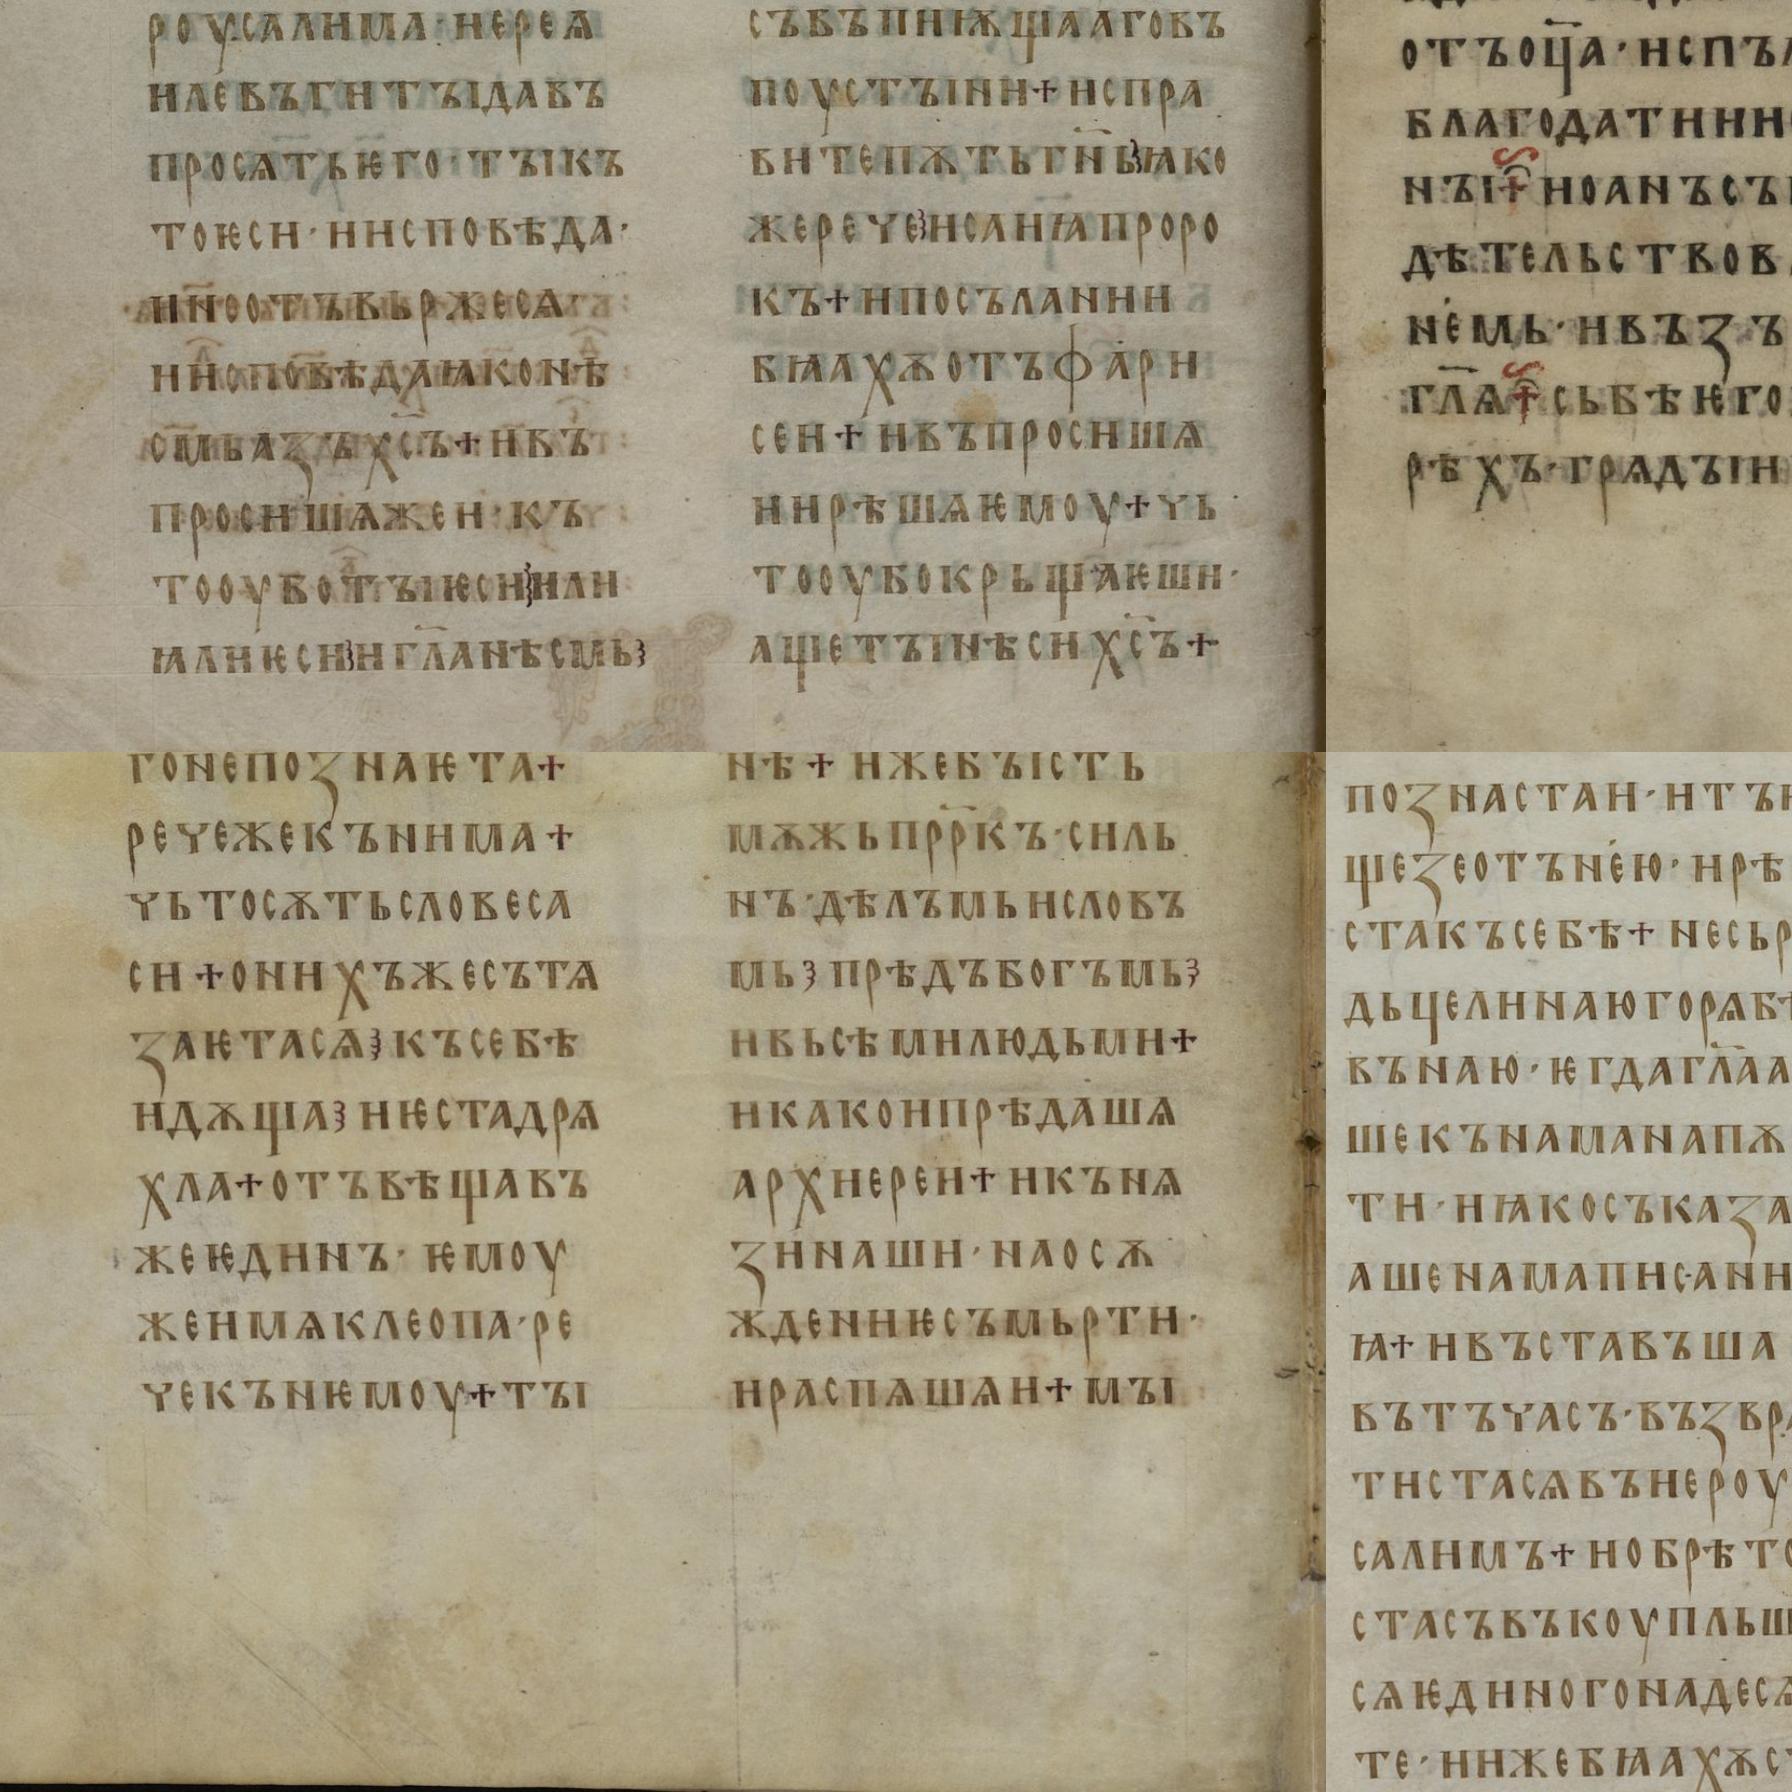 роусалима· иерея
илеѵъгитъідавъ
просѧтьѥго· тъікъ
тоѥси· ииспов҄ѣда·
инеотъвьржесѧ·
ииспов҄ѣдаꙗконѣ
смьазъхс҃ъ+ивъ
просишѧжеи· къ
тооуботъіѥсиꙁили
ꙗлиѥсиꙁигл҃анѣсмьꙁ
съвъпиѭщааговъ
поустъіни+испра
витепѫтьгн҃ьꙁꙗко
жеречеꙁисаиꙗпроро
къ+ипосълании
бꙗахѫотъфари
сеи+ивъпросишѧ
ирѣшѧѥмоу+чь
тооубокрьщаѥши·
ащетъінѣсихс҃ъ+
отъоц҃а· испъл
благодатиии
нъі+иоанъсъ
дѣтельствов
немь· ивъзъ
гл҃ѧ+сьбѣѥго
рѣхъ· грѧдъіи
гонепознаѥта+
речежекънима+
чьтосѫтьсловеса
си+онихъжесътѧ
заѥтасѧꙁкъсебѣ
идѫщаꙁиѥстадрѧ
хла+отъвѣщавъ
жеѥдинъ· ѥмоу
жеимѧклеопа· ре
чекънѥмоу+тъі
нѣ+ижебъість
мѫжьпрр҃къ· силь
нъ· дѣлъмьисловъ
мьꙁпрѣдъбогъмьꙁ
ивьсѣмилюдьми+
икакоипрѣдашѧ
архиереи+икънѧ
зинаши· наосѫ
ждениѥсъмьрти·
ираспѧшѧи+мъі
познастаи· итъи
щезеотънею· ирѣ
стакъсебѣ+несьр
дьцелинаюгорѧбѣ
вънаю· ѥгдагл҃аа
шекънаманапѫ
ти· иꙗкосъказа
ашенамаписани
ꙗ+ивъставъша
вътъчасъ· възвра
тистасѧвъиероу
салимъ+иобрѣто
стасъвъкоупльш
сѧѥдиногонадесѧ
те· иижебꙗахѫс